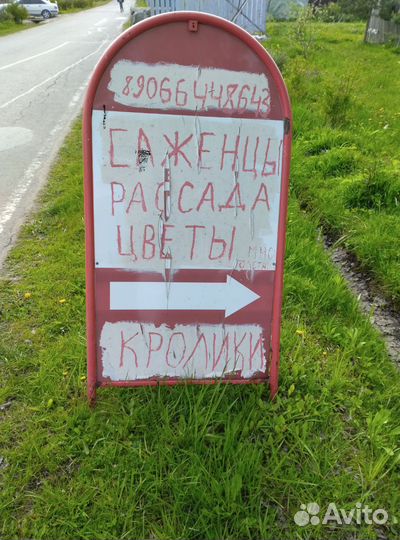 89066448643
САЖЕНЦЫ
РАССАДА
ЦВЕТЫ
КРОЛИКИ
Avito